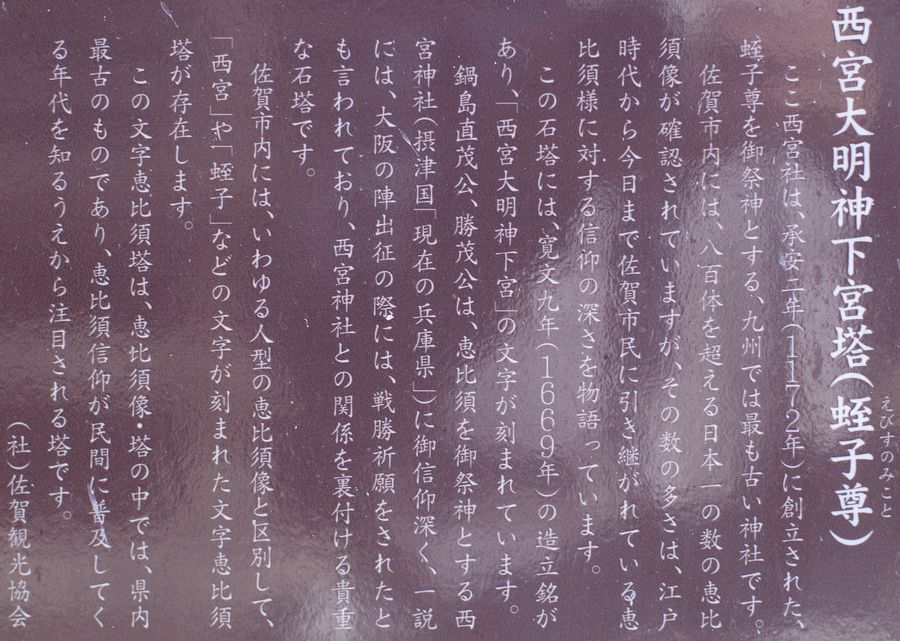 西宮大明神下宮塔(蛭子尊)
えびすのみこと
ここ西宮社は、承安二年(1172年)に創立された、
蛭子尊を御祭神とする、九州では最も古い神社です。
佐賀市内には、八百体を超える日本一の数の恵比
須像が確認されていますが、その数の多さは、江戸
時代から今日まで佐賀市民に引き継がれている恵
比須様に対する信仰の深さを物語っています。
この石塔には、寛文九年(1669年)の造立銘が
あり、「西宮大明神下宮」の文字が刻まれています。
鍋島直茂公、勝茂公は、恵比須を御祭神とする西
宮神社(摂津国「現在の兵庫県」)に御信仰深く、一説
には、大阪の陣出征の際には、戦勝祈願をされたと
も言われており、西宮神社との関係を裏付ける貴重
な石塔です。
佐賀市内には、いわゆる人型の恵比須像と区別して、
「西宮」や「蛭子」などの文字が刻まれた文字恵比須
塔が存在します。
この文字恵比須塔は、恵比須像・塔の中では、県内
最古のものであり、恵比須信仰が民間に普及してく
る年代を知るうえから注目される塔です。
(社)佐賀観光協会